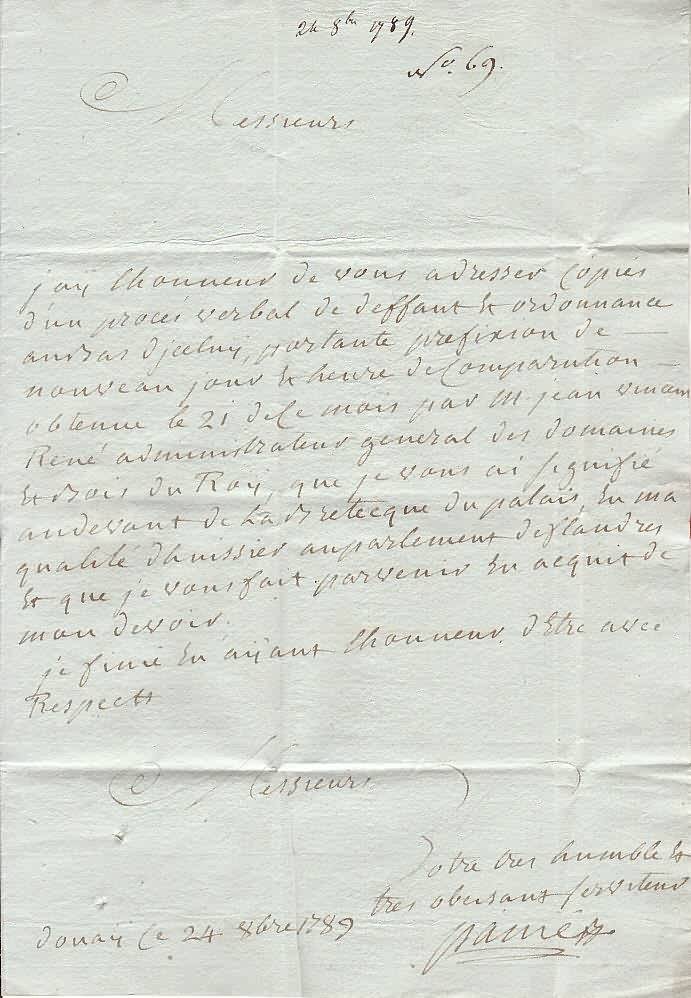 24 8bre 1789.
No. 69.
Messieurs
j'ay lhonneur de vous adresser Copies
d'un procés verbal de deffaut et ordonnance
au bas d'jceluy, portante prefixion de
nouveau jour et heure de Comparution
obtenue le 21 de Ce mois par M. jean vincent
René administrateur general des domaines
et bois du Roy, que je vous ai signifié
au devant de La Bretecque du palais, En ma
qualité d'huissier au parlement de flandres
Et que je vous fait parvenir En acquit de
mon devoir.
je finie En aÿant lhonneur d'Etre avec
Respects
Messieurs
Votre tres humble Et
tres obeisant serviteur
douay Ce 24 8bre 1789